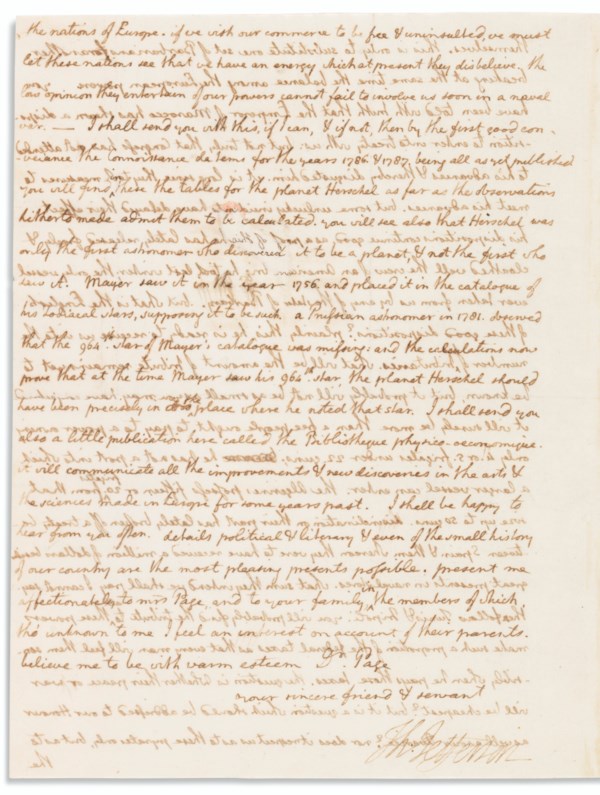 the nations of Europe. if we wish our commerce to be free & uninsulted, we must
let these nations see that we have an energy which at present they disbelieve. the
low opinion they entertain of our powers cannot fail to involve us soon in a naval
war. — I shall send you with this, if I can, & if not, then by the first good con-
-veiance the Connoissance de tems for the years 1786 & 1787, being all as yet published.
you will find in these the tables for the planet Herschel as far as the observations
hitherto made admit them to be calculated. you will see also that Herschel was
only the first astronomer who discovered it to be a planet, & not the first who
saw it. Mayer saw it in the year 1756. and placed it in the catalogue of
his zodiacal stars, supposing it to be such. a Prussian astronomer in 1781. observed
that the 964th star of Mayer's catalogue was missing: and the calculations now
prove that at the time Mayer saw his 964th star, the planet Herschel should
have been precisely in the place where he noted that star. I shall send you
also a little publication here called the Bibliotheque physico-oeconomique.
it will communicate all the improvements & new discoveries in the arts &
the sciences made in Europe for some years past. I shall be happy to
hear from you often. details political & literary & even of the small history
of our country are the most pleasing presents possible. present me
affectionately to mrs Page, and to your family, in the members of which,
tho' unknown to me I feel an interest on account of their parents.
believe me to be with warm esteem Dr. Page
your sincere friend & servant
Th: Jefferson